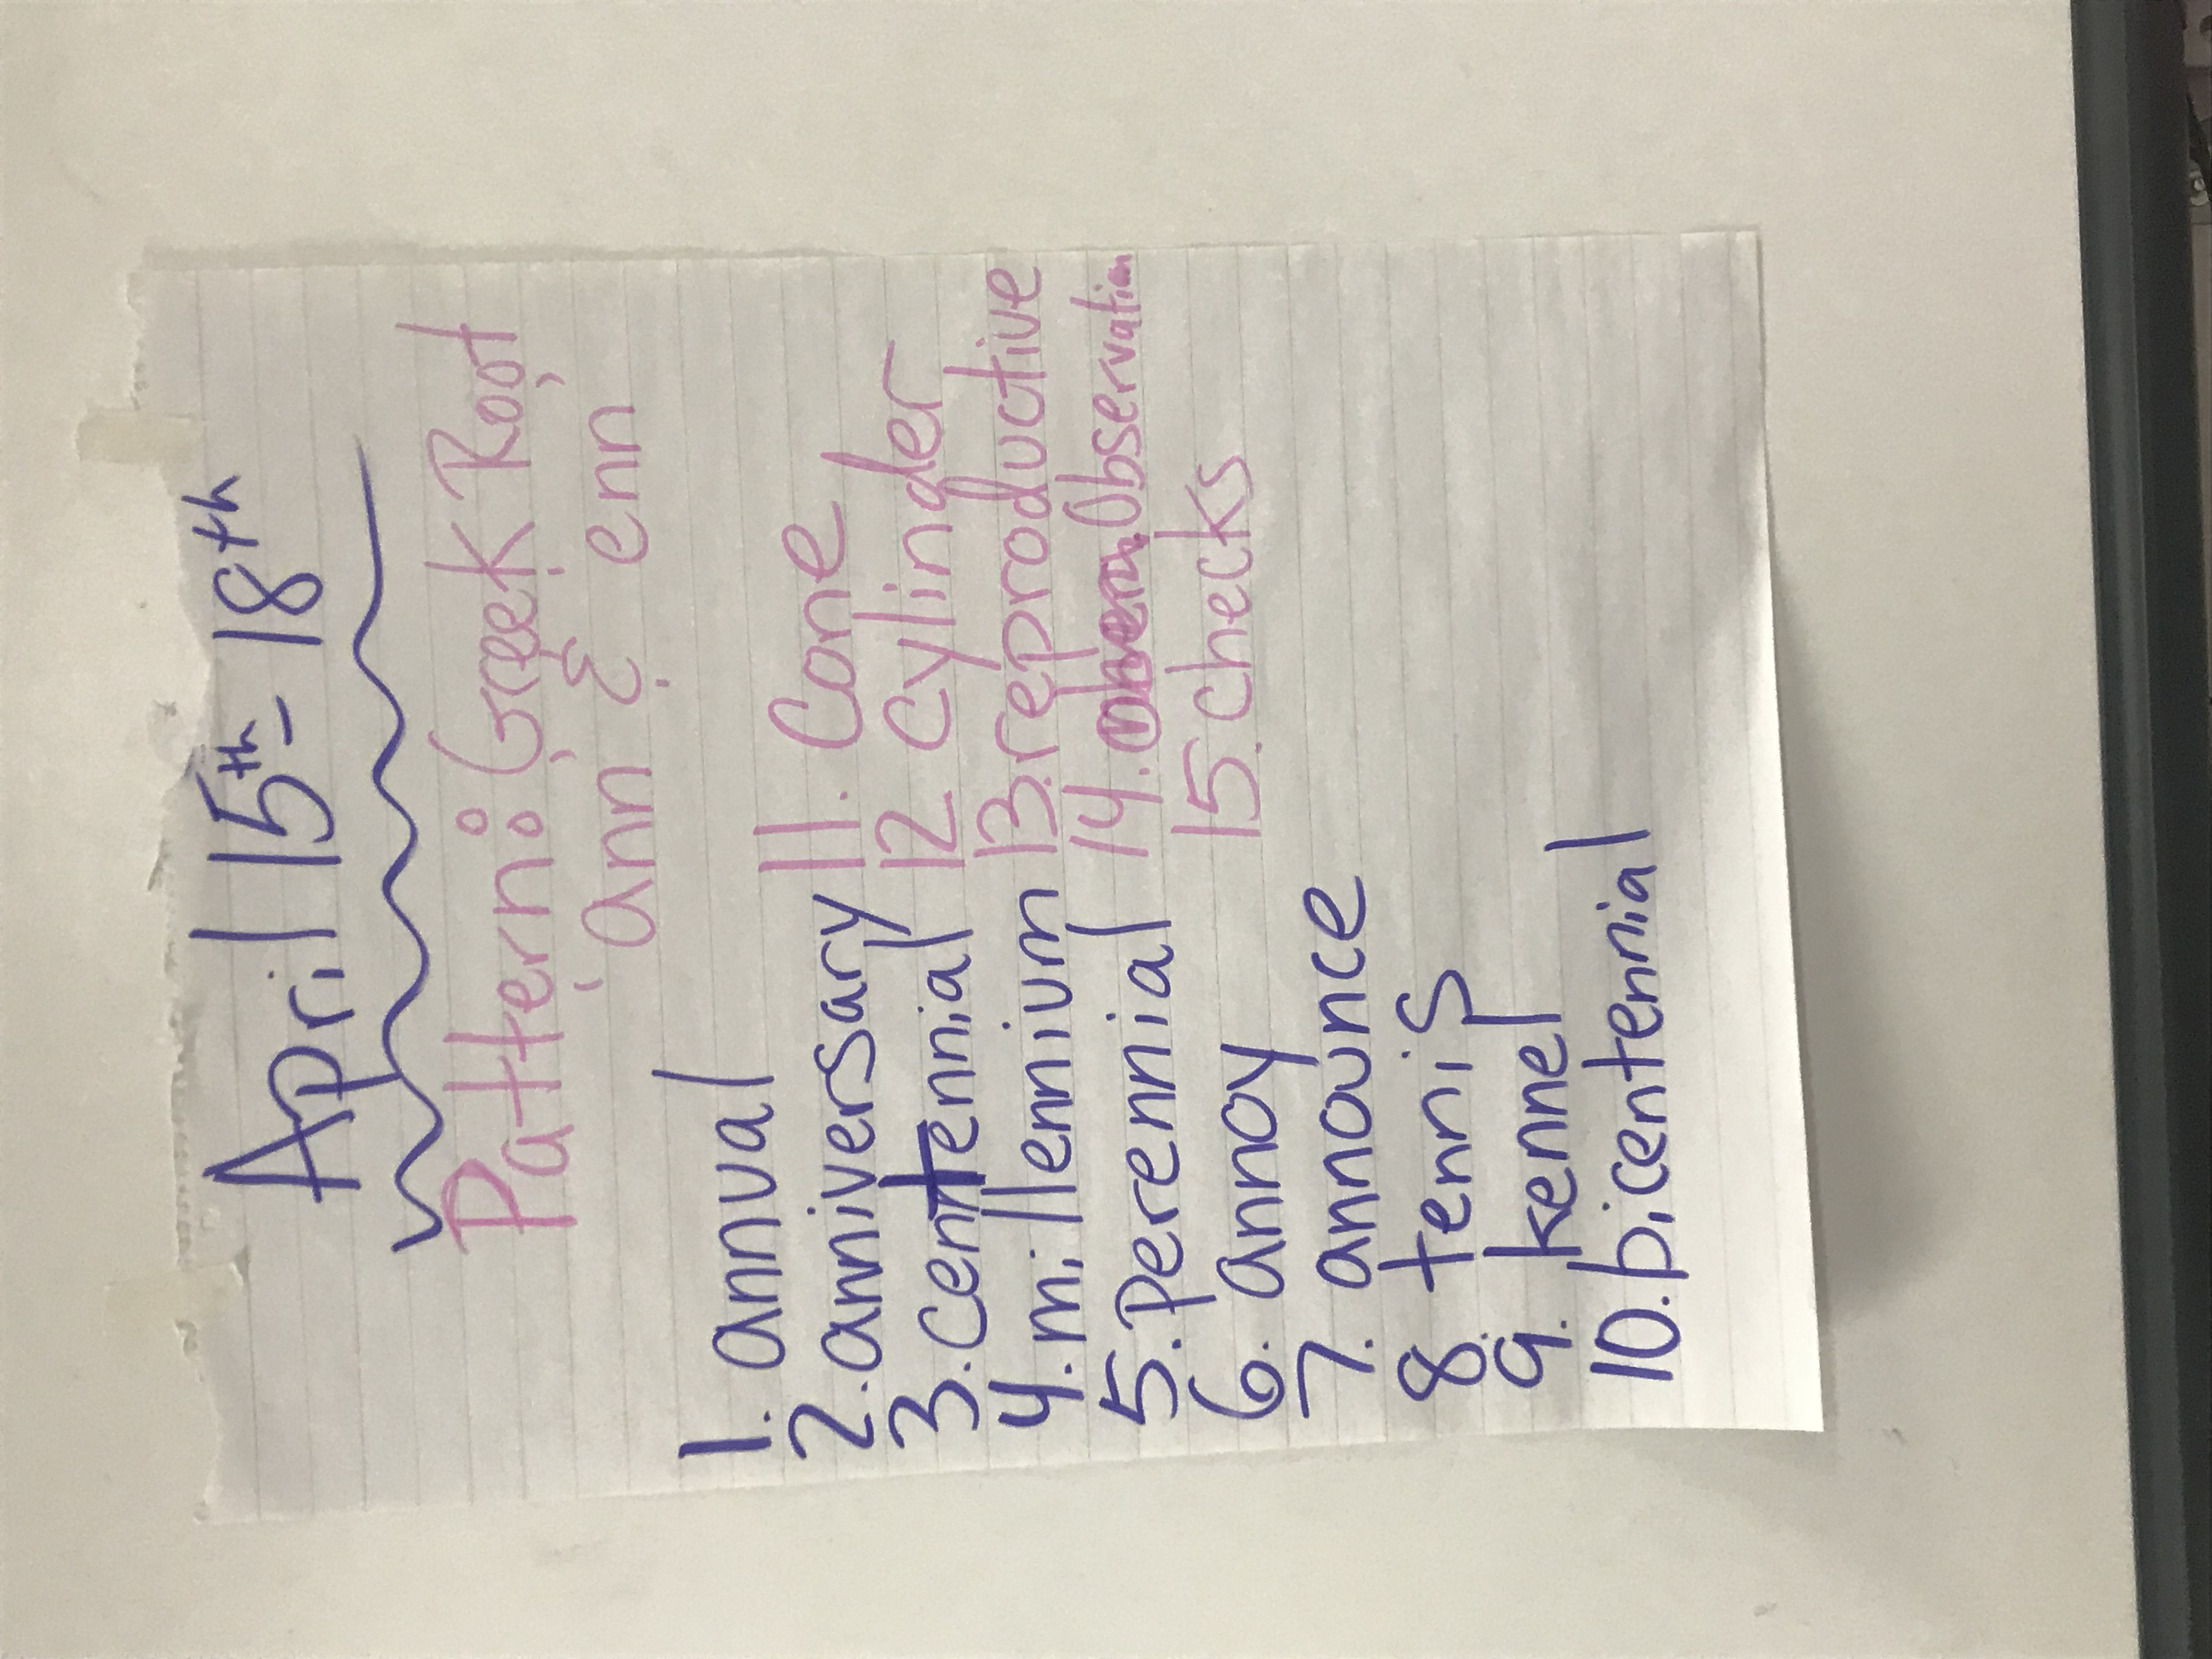 April 15th - 18th
Pattern: Greek Root,
'ann & enn
1. annual
2. anniversary
3. centennial
4. millennium
5. perennial
6. annoy
7. announce
8. tennis
9. kennel
10. bicentennial
11. Cone
12 cylinder
13. reproductive
14. Observation
15. checks